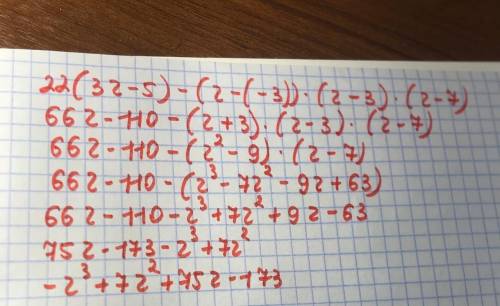 22(3z-5)-(z-(-3))·(z-3)·(z-7)
66z-110-(z+3)·(z-3)·(z-7)
66z-110-(z²-9)·(z-7)
66z-110-(z³-7z²-9z+63)
66z-110-z³+7z²+9z-63
75z-173-z³+7z²
-z³+7z²+75z-173